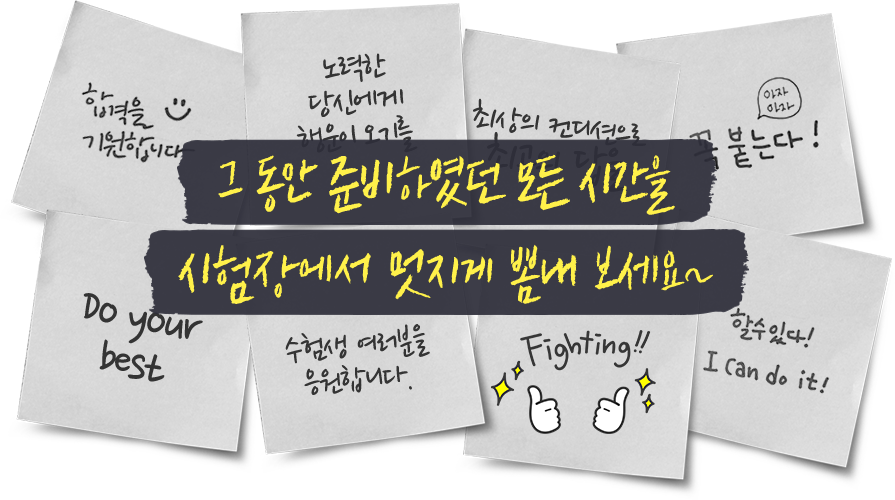 합격을
기원합니다
노력한
당신에게
행운이 오기를
최상의 컨디션으로
아자
아자
꼭 붙는다!
그 동안 준비하였던 모든 시간을
시험장에서 멋지게 뽐내 보세요~
Do your
best
수험생 여러분을
응원합니다.
Fighting!!
할수있다!
I can do it!